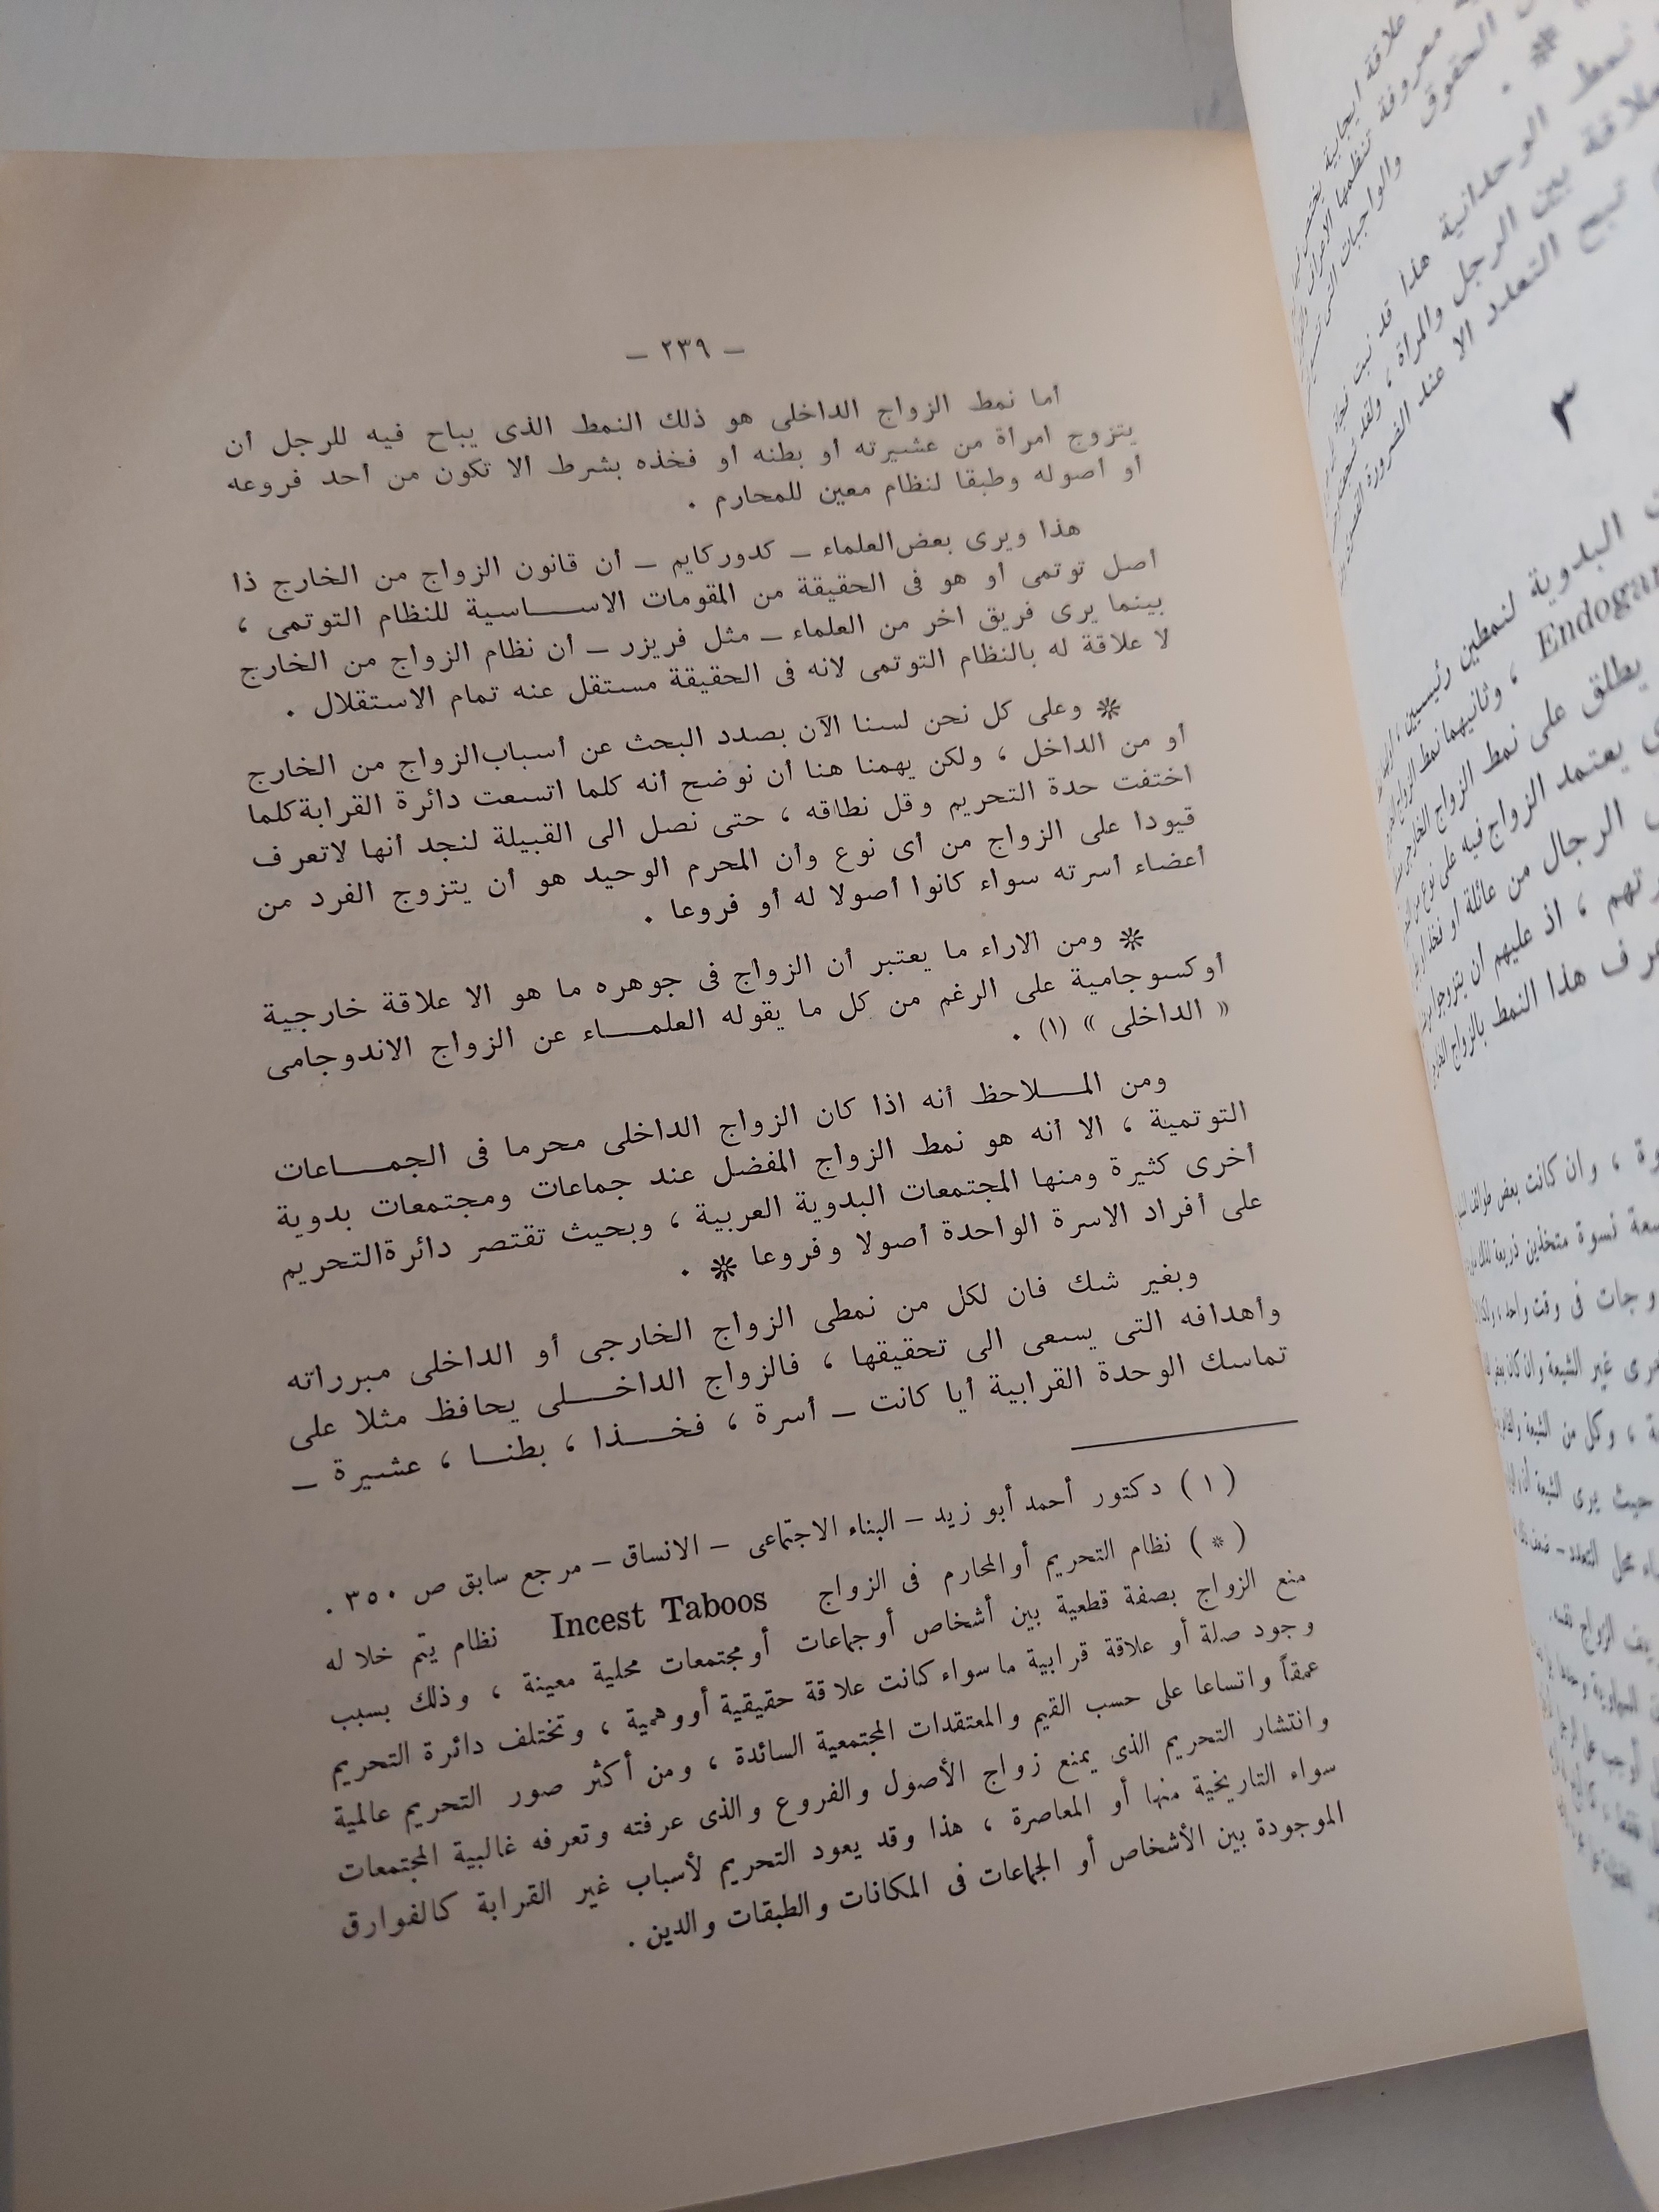 – ٢٣٩ –
أما نمط الزواج الداخلى هو ذلك النمط الذى يباح فيه للرجل أن
يتزوج امرأة من عشيرته أو بطنه أو فخذه بشرط الا تكون من أحد فروعه
أو أصوله وطبقا لنظام معين للمحارم .
هذا ويرى بعض العلماء – كدوركايم – أن قانون الزواج من الخارج ذا
أصل توتمى أو هو فى الحقيقة من المقومات الاساسية للنظام التوتمى ،
بينما يرى فريق اخر من العلماء – مثل فريزر – أن نظام الزواج من الخارج
لا علاقة له بالنظام التوتمى لانه فى الحقيقة مستقل عنه تمام الاستقلال .
※ وعلى كل نحن لسنا الآن بصدد البحث عن أسباب الزواج من الخارج
أو من الداخل ، ولكن يهمنا هنا أن نوضح أنه كلما اتسعت دائرة القرابة كلما
اختفت حدة التحريم وقل نطاقه ، حتى نصل الى القبيلة لنجد أنها لا تعرف
قيودا على الزواج من أى نوع وأن المحرم الوحيد هو أن يتزوج الفرد من
أعضاء أسرته سواء كانوا أصولا له أو فروعا .
※ ومن الاراء ما يعتبر أن الزواج فى جوهره ما هو الا علاقة خارجية
أوكسوجامية على الرغم من كل ما يقوله العلماء عن الزواج الاندوجامى
« الداخلى » (١) .
ومن الملاحظ أنه اذا كان الزواج الداخلى محرما فى الجماعات
التوتمية ، الا أنه هو نمط الزواج المفضل عند جماعات ومجتمعات بدوية
أخرى كثيرة ومنها المجتمعات البدوية العربية ، وبحيث تقتصر دائرة التحريم
على أفراد الاسرة الواحدة أصولا وفروعا ※ .
وبغير شك فان لكل من نمطى الزواج الخارجى أو الداخلى مبرراته
وأهدافه التى يسعى الى تحقيقها ، فالزواج الداخلى يحافظ مثلا على
تماسك الوحدة القرابية أيا كانت – أسرة ، فخذا ، بطنا ، عشيرة –
( ١ ) دكتور أحمد أبو زيد – البناء الاجتماعى – الانساق – مرجع سابق ص ٣٥٠ .
( * ) نظام التحريم أو المحارم فى الزواج Incest Taboos نظام يتم خلاله
منع الزواج بصفة قطعية بين أشخاص أو جماعات أو مجتمعات محلية معينة ، وذلك بسبب
وجود صلة أو علاقة قرابية ما سواء كانت علاقة حقيقية أو وهمية ، وتختلف دائرة التحريم
عمقاً واتساعا على حسب القيم والمعتقدات المجتمعية السائدة ، ومن أكثر صور التحريم عالمية
وانتشار التحريم الذى يمنع زواج الأصول والفروع والذى عرفته وتعرفه غالبية المجتمعات
سواء التاريخية منها أو المعاصرة ، هذا وقد يعود التحريم لأسباب غير القرابة كالفوارق
الموجودة بين الأشخاص أو الجماعات فى المكانات والطبقات والدين .
علاقة ايجابية
معروفة تنظمها
الحقوق والواجبات التى
※ .
نمط الوحدانية هذا قد نبت
علاقة بين الرجل والمرأة ، ولقد
تبح التعدد الا عند الضرورة
٣
البدوية لنمطين رئيسيين ،
، وثانيهما نمط الزواج
يطلق على نمط الزواج الخارجى
يعتمد الزواج فيه على نوع من
الرجال من عائلة أو فخذ
، اذ عليهم أن يتزوجوا
هذا النمط بالزواج
، وان كانت بعض طوائف
نسوة متخذين ذريعة
فى وقت واحد ،
غير الشيعة وان كان
، وكل من الشيعة
حيث يرى الشيعة أن
محل التعدد –